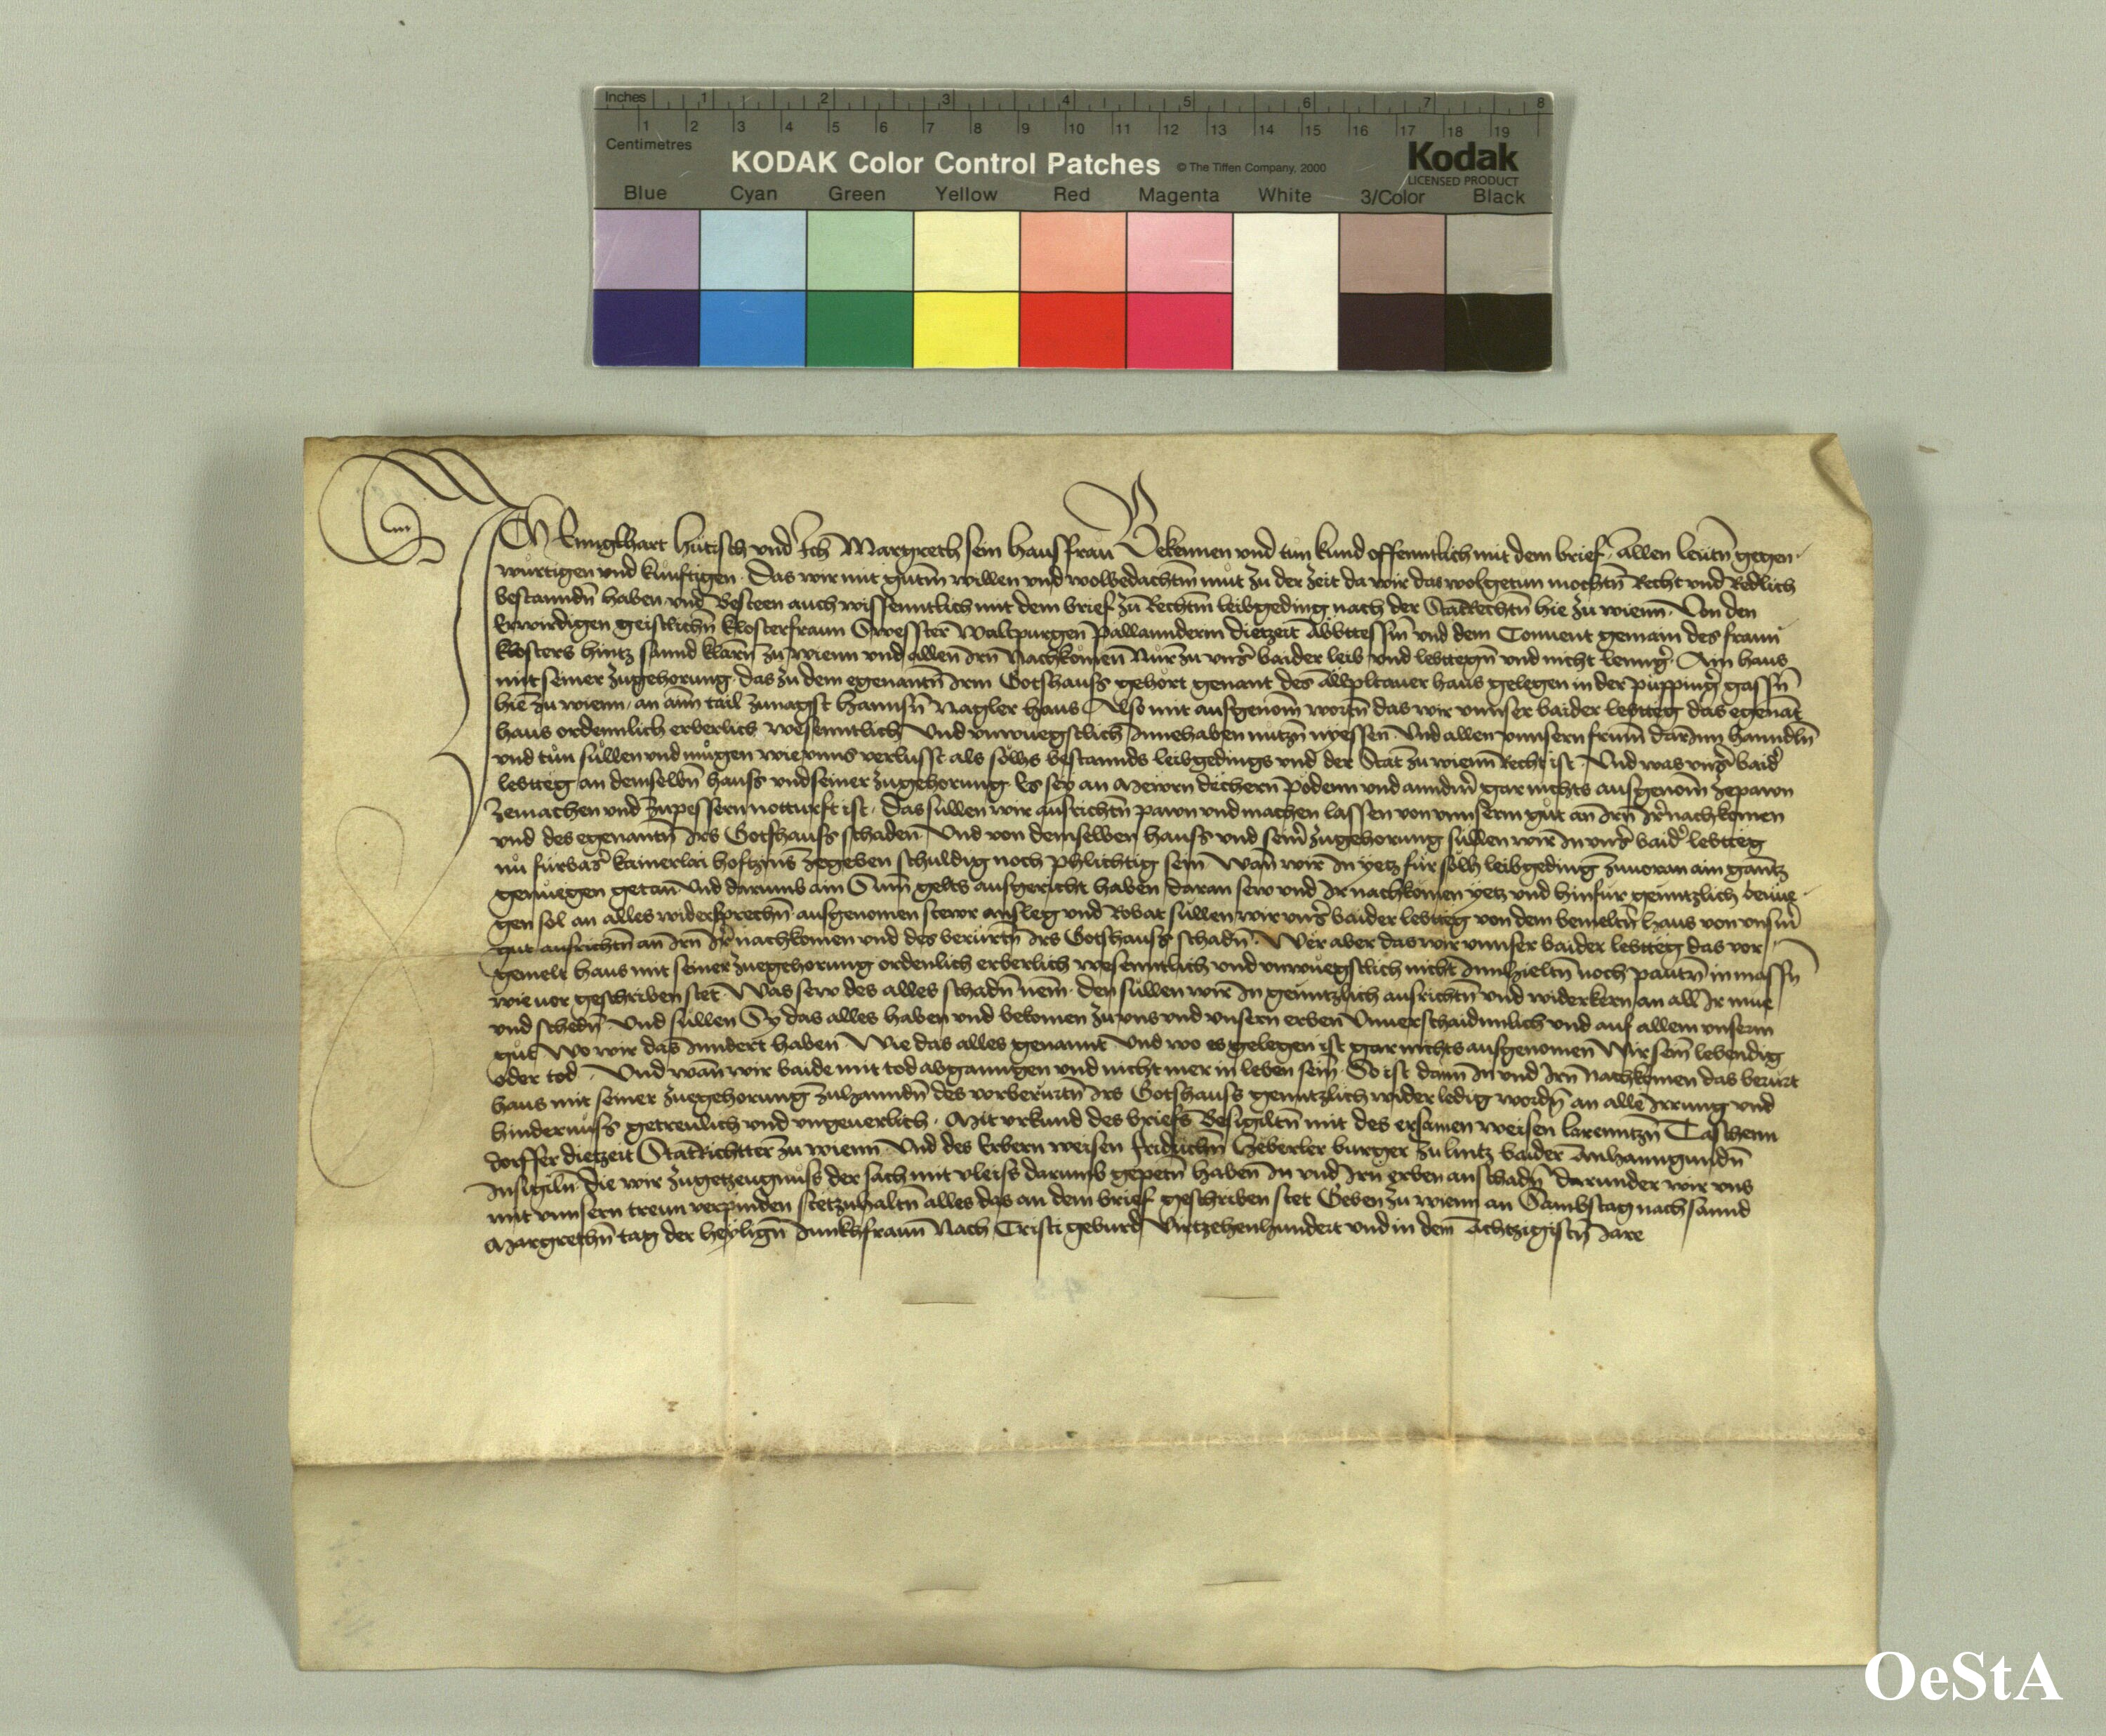 Inches 1 2 3 4 5 6 7 8
1 2 3 4 5 6 7 8 9 10 11 12 13 14 15 16 17 18 19
Centimetres
KODAK Color Control Patches © The Tiffen Company, 2000 Kodak
LICENSED PRODUCT
Blue Cyan Green Yellow Red Magenta White 3/Color Black
Ich hůtisch vnd Ich Margreth sein hausfrau Bekennen vnd tun kund offenntlich mit dem brief allen leůtn̄ gegen
wůrtigen vnd kůnfftigen Das wir mit gůtm̄ willen vnd wolbedachtm̄ můt zu der zeit da wir das wolgetun mochtn̄ Recht vnd Redlich
bestanndn̄ haben vnd Besteen auch wissenntlich mit dem brief zu Rechtm̄ leibgeding nach der Statrechtn̄ hie zu wienn Von den
Erwirdigen geistlichn̄ klosterfraun Swesster Waltpurgen dietzeit Abbttessin̄ vnd dem Conuent gemain des fraun
klosters hintz sannd klarn̄ zu wienn vnd allen Irn̄ Nachkomen Nur zu vnser baider leib vnd lebttegn̄ vnd nicht lennger Ain haus
mit seiner zugehorung das zu dem egenantn̄ Irm Gotshauss gehort genant des haus gelegen in der gassn̄
hie zu wienn an aim̄ tail zunagst hannsn̄ Nagler haus Also mit ausgenom̄ wortn̄ das wir vnnser baider lebtteg das egenāt
haus ordennlich erberlich wesenntlich Vnd vnwuegstlich Innehaben nutzn̄ nyessen Vnd allen vnnsern frum̄ darInn hanndln̄
vnd tůn sůllen vnd můgen wie vnns verlusst als sölhs bestannds leibgedings vnd der Stat zu wienn Recht ist Vnd was vnser baider
lebtteg an demselbn̄ hauss vnd seiner zugehorung Es sey an Mewrn dechern Pödemm vnd anndrm̄ gar nichts ausgenom̄ zepawn
zemachen vnd zupessern notturfft ist Das sullen wir ausrichtn̄ pawn vnd machen lassen von vnnserm gůt an Irn̄ Ir nachkomen
vnd des egenantn̄ Irs Gotshauss schaden Vnd von demselben hauss vnd seiner zugehorung sullen wir In vnser baider lebtteg
nů fůrbaser kainerlai hoftzins zegeben schuldig noch phlichtig sein Wan̄ wir In yetz fůr sölh leibgeding zuuoran ain gantz
genuegen getan Vnd darumb ain Sum̄ gelts ausgericht haben daran sew vnd Ir nachkomen yetz vnd hinfůr genntzlich benůe
gen sol an alles widersprechn̄ ausgenomen stewr anslag vnd Robat sullen wir vnser baider lebtteg von dem bemeltn̄ haus von vnsm̄
gut ausrichtn̄ an Irn̄ Ir nachkomen vnd des berůrtn̄ Irs Gotshauss schadn̄ Wer aber das wir vnnser baider lebtteg das vor
gemelt haus mit seiner zuegehorung ordenlich erberlich wesenntlich vnd vnwůegstlich nicht Innhieltn̄ noch pautn̄ inmassn̄
wie vor geschriben stet Was sew des alles schadn̄ nem̄ den sullen wir In genntzlich ausrichtn̄ vnd widerkern an all Ir mue
vnd schedn̄ Vnd sullen Sy das alles haben vnd bekomen zu vns vnd vnsern erben Vnuerschaidennlich vnd auf allem vnserm
gůt Wo wir das Inndert haben Wie das alles genannt Vnd wo es gelegen ist gar nichts ausgenomen Wir sein lebendig
oder tod Vnd wan̄ wir baide mit tod abganngen vnd nicht mer in leben sein So ist dann In vnd Irn̄ nachkomen das berůrt
haus mit seiner zuegehorung zuhanndn̄ des vorberůrtn̄ Irs Gotshauss genntzlich wider ledig wordn̄ an alle Irrung vnd
hindernůss getreulich vnd vngeuerlich Mit vrkund des briefs Besigiltn̄ mit des ersamen weisen larenntzn̄ Taschenn
dorffer dietzeit Statrichtter zu wienn Vnd des Erbern weisen fridrichn̄ burger zu lintz baider Anhanngundn̄
Insigiln̄ die wir zugetzeugnůss der sach mit vleiss darumb gepetn̄ haben In vnd Irn̄ erben an schadn̄ Darunder wir vns
mit vnnsern treun verpinden stetzuhaltn̄ alles das an dem brief geschriben stet Geben zu wienn an Sambstag nach sannd
Margrethn̄ tag der heylign̄ Junkhfraun Nach Cristi geburd Virtzehenhundert vnd in dem Achtzigistn̄ Jare
OeStA